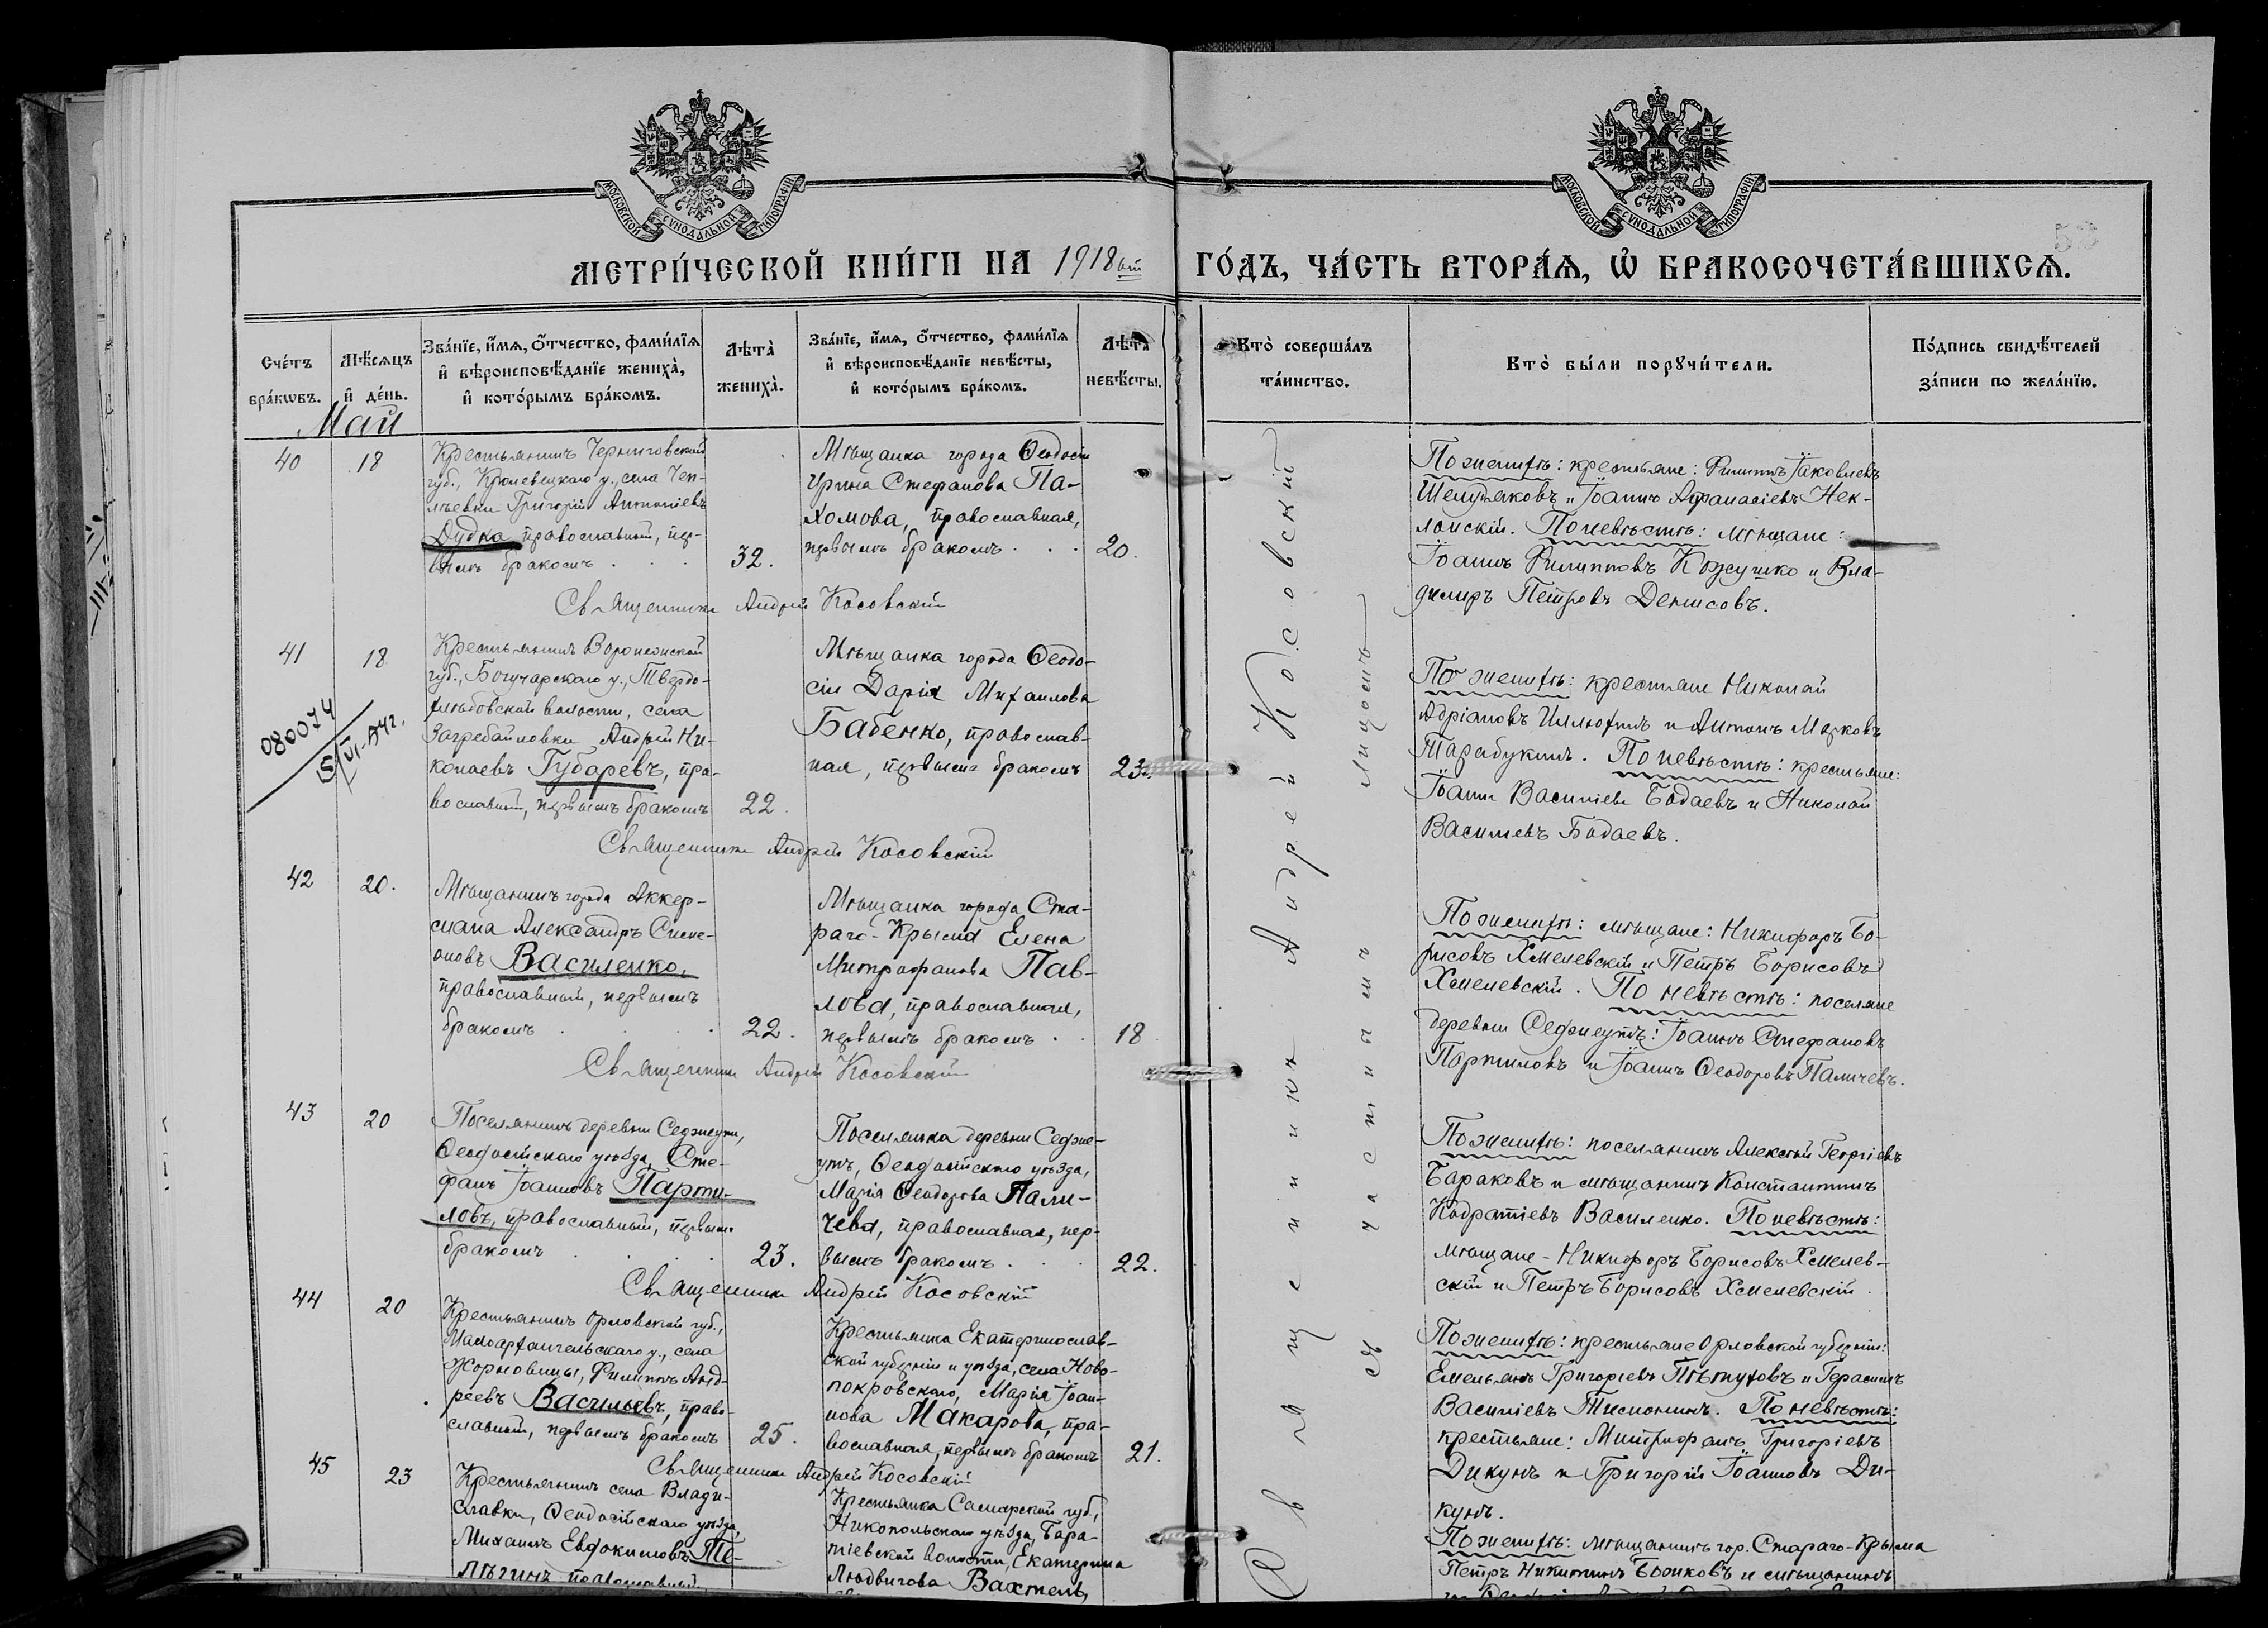 МОСКОВСКОЙ СѴНОДАЛЬНОЙ ТИПОГРАФІИ
МОСКОВСКОЙ СѴНОДАЛЬНОЙ ТИПОГРАФІИ
МЕТРИ́ЧЕСКОЙ КНИ́ГИ НА 1918 ГО́ДЪ, ЧА́СТЬ ВТОРА́Ѧ, Ѡ҆ БРАКОСОЧЕТА́ВШИХСѦ.
Сче́тъ бра́кѡвъ.
Мѣ́сѧцъ и҆ де́нь.
Зва́нїе, и҆́мѧ, ѻ҆́тчество, фами́лїѧ
и҆ вѣроисповѣ́данїе жениха̀,
и҆ кото́рымъ бра́комъ.
Лѣта̀ жениха̀.
Зва́нїе, и҆́мѧ, ѻ҆́тчество, фами́лїѧ
и҆ вѣроисповѣ́данїе невѣ́сты,
и҆ кото́рымъ бра́комъ.
Лѣта̀ невѣ́сты.
Кто̀ соверша́лъ та́инство.
Кто̀ бы́ли порꙋчи́тели.
По́дпись свидѣ́телей за́писи по жела́нїю.
Май
40
18
Крестьянинъ Черниговской
губ., Кролевецкаго у., села Чеп-
лѣевки Григорій Антоніевъ
Дудка православный, пер-
вымъ бракомъ . . .
32.
Мѣщанка города Ѳеодосіи
Ирина Стефанова Па-
хомова, православная,
первымъ бракомъ . . .
20.
Священникъ Андрей Косовскій
По женихѣ: крестьяне: Филиппъ Іаковлевъ
Шелудяковъ и Іоаннъ Аѳанасіевъ Нек-
лонскій. По невѣстѣ: мѣщане:
Іоаннъ Филипповъ Кожушко и Вла-
димиръ Петровъ Денисовъ.
41
18
080074
Крестьянинъ Воронежской
губ., Богучарскаго у., Твердо-
хлѣбовской волости, села
Загребайловки Андрей Ни-
колаевъ Губаревъ, пра-
вославный, первымъ бракомъ
22.
Мѣщанка города Ѳеодо-
сіи Дарія Михаилова
Бабенко, православ-
ная, первымъ бракомъ
23.
Священникъ Андрей Косовскій
По женихѣ: крестьяне Николай
Адріановъ Иллюхинъ и Антонъ Марковъ
Тарабукинъ. По невѣстѣ: крестьяне:
Іоаннъ Василіевъ Бадаевъ и Николай
Василіевъ Бадаевъ.
42
20.
Мѣщанинъ города Аккер-
мана Александръ Симе-
оновъ Василенко,
православный, первымъ
бракомъ . . . .
22.
Мѣщанка города Ста-
раго-Крыма Елена
Митрофанова Пав-
лова, православная,
первымъ бракомъ . .
18
Священникъ Андрей Косовскій
По женихѣ: мѣщане: Никифоръ Бо-
рисовъ Хмелевскій и Петръ Борисовъ
Хмелевскій. По невѣстѣ: поселяне
деревниСеджеутъ: Іоаннъ Стефановъ
Партиловъ и Іоаннъ Ѳеодоровъ Паличевъ.
43
20
Поселянинъ деревни Седжеутъ,
Ѳеодосійскаго уѣзда, Сте-
фанъ Іоанновъ Парти-
ловъ, православный, первымъ
бракомъ . . . .
23.
Поселянка деревни Седже-
утъ, Ѳеодосійскаго уѣзда,
Марія Ѳеодорова Пали-
чева, православная, пер-
вымъ бракомъ . . .
22.
Священникъ Андрей Косовскій
По женихѣ: поселянинъ Алексѣй Георгіевъ
Бараковъ и мѣщанинъ Константинъ
Кодратіевъ Василенко. По невѣстѣ:
мѣщане - Никифоръ Борисовъ Хмелев-
скій и Петръ Борисовъ Хмелевскій.
44
20
Крестьянинъ Орловской губ.,
Малоархангельскаго у., села
Жорновицы, Филиппъ Анд-
реевъ Васильевъ, право-
славный, первымъ бракомъ
25.
Крестьянка Екатеринослав-
ской губерніи и уѣзда, села Ново-
покровскаго, Марія Іоан-
нова Макарова, пра-
вославная, первымъ бракомъ
21.
Священникъ Андрей Косовскій
По женихѣ: крестьяне Орловской губерніи:
Емельянъ Григоріевъ Пѣтуховъ и Герасимъ
Василіевъ Тисконинъ. По невѣстѣ:
крестьяне: Митрофанъ Григоріевъ
Дикунъ и Григорій Іоанновъ Ди-
кунъ.
45
23
Крестьянинъ села Влади-
славки, Ѳеодосійскаго уѣзда
Михаилъ Евдокимовъ Те-
лѣгинъ православный
Крестьянка Самарской губ.,
Никопольскаго уѣзда, Бара-
тіевской волости, Екатерина
Людвигова Вахтель,
По женихѣ: мѣщанинъ гор. Стараго-Крыма
Петръ Никитинъ Божковъ и мѣщанинъ
Священникъ Андрей Косовскій
съ причтомъ